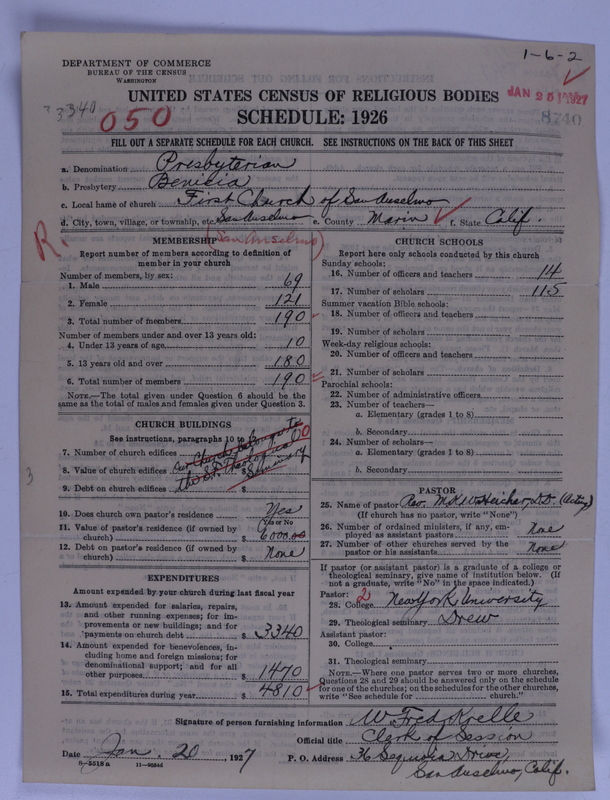 1-6-2
DEPARTMENT OF COMMERCE
BUREAU OF THE CENSUS
WASHINGTON
UNITED STATES CENSUS OF RELIGIOUS BODIES
JAN 25 1927
3340
050
SCHEDULE: 1926
8740
FILL OUT A SEPARATE SCHEDULE FOR EACH CHURCH. SEE INSTRUCTIONS ON THE BACK OF THIS SHEET
a. Denomination Presbyterian
b. Presbytery Benicia
c. Local name of church First Church of San Anselmo
d. City, town, village, or township, etc. San Anselmo e. County Marin f. State Calif.
R.
(San Anselmo)
MEMBERSHIP
Report number of members according to definition of
member in your church
Number of members, by sex:
1. Male 69
2. Female 121
3. Total number of members 190
Number of members under and over 13 years old:
4. Under 13 years of age 10
5. 13 years old and over 180
6. Total number of members 190
NOTE.—The total given under Question 6 should be the
same as the total of males and females given under Question 3.
CHURCH BUILDINGS
See instructions, paragraphs 10 to 12
7. Number of church edifices 0
8. Value of church edifices $
9. Debt on church edifices $
Our Church belongs to
the S.F. Theological
Seminary
10. Does church own pastor's residence? Yes
Yes or No
11. Value of pastor's residence (if owned by
church) $ 6000.00
12. Debt on pastor's residence (if owned by
church) $ None
EXPENDITURES
Amount expended by your church during last fiscal year
13. Amount expended for salaries, repairs,
and other running expenses; for im-
provements or new buildings; and for
payments on church debt $ 3340
14. Amount expended for benevolences, in-
cluding home and foreign missions; for
denominational support; and for all
other purposes $ 1470
15. Total expenditures during year $ 4810
CHURCH SCHOOLS
Report here only schools conducted by this church
Sunday schools:
16. Number of officers and teachers 14
17. Number of scholars 115
Summer vacation Bible schools:
18. Number of officers and teachers
19. Number of scholars
Week-day religious schools:
20. Number of officers and teachers
21. Number of scholars
Parochial schools:
22. Number of administrative officers
23. Number of teachers—
a. Elementary (grades 1 to 8)
b. Secondary
24. Number of scholars—
a. Elementary (grades 1 to 8)
b. Secondary
PASTOR
25. Name of pastor Rev. M.K.W. Heicher, D.D. (Acting)
(If church has no pastor, write "None")
26. Number of ordained ministers, if any, em-
ployed as assistant pastors None
27. Number of other churches served by the
pastor or his assistants None
If pastor (or assistant pastor) is a graduate of a college or
theological seminary, give name of institution below. (If
not a graduate, write "No" in the space indicated.)
Pastor: 2
28. College New York University
29. Theological seminary Drew
Assistant pastor:
30. College
31. Theological seminary
NOTE.—Where one pastor serves two or more churches,
Questions 28 and 29 should be answered only on the schedule
for one of the churches; on the schedules for the other churches,
write "See schedule for church."
Signature of person furnishing information W. Fred Krelle
Official title Clerk of Session
Date Jan. 20, 1927 P. O. Address 36 Sequoia Drive,
8-5518 a
San Anselmo, Calif.